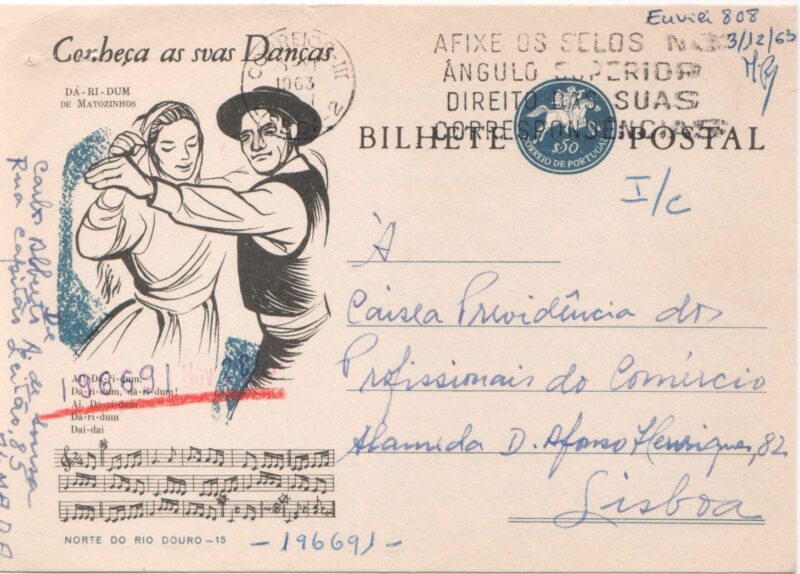 Enviei 808
3/12/63
Conheça as suas Danças
DÁ-RI-DUM
DE MATOZINHOS
CORREIOS
1963
AFIXE OS SELOS NO
ÂNGULO SUPERIOR
DIREITO DAS SUAS
CORRESPONDÊNCIAS
BILHETE POSTAL
$50
CORREIO DE PORTUGAL
I/c
À
Caixa Previdência dos
Profissionais do Comércio
Alameda D. Afonso Henriques, 82
Lisboa
De
Carlos Alberto A. de Sousa
Rua Capitão Leitão, 85
ALMADA
Ai! Dá-ri-dum,
Dá-ri-dum, dá-ri-dum!
Ai, Dá-ri-dum
Dá-ri-dum
Dai-dai
196691 NOV
NORTE DO RIO DOURO – 15
- 196691 -